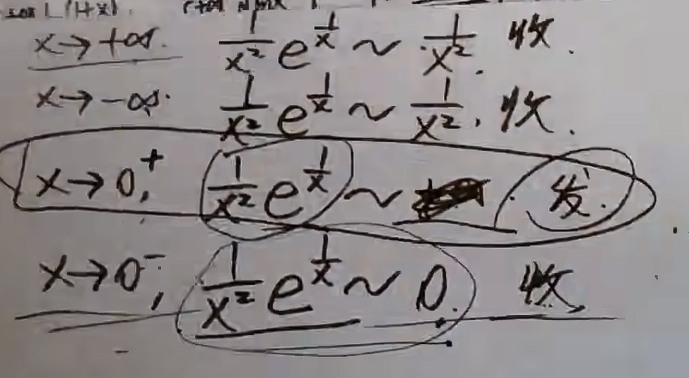 x→+∞. 1/x² e^(1/x) ~ 1/x². 收.
x→-∞. 1/x² e^(1/x) ~ 1/x². 收.
x→0⁺, 1/x² e^(1/x) ~ 发.
x→0⁻, 1/x² e^(1/x) ~ 0. 收.